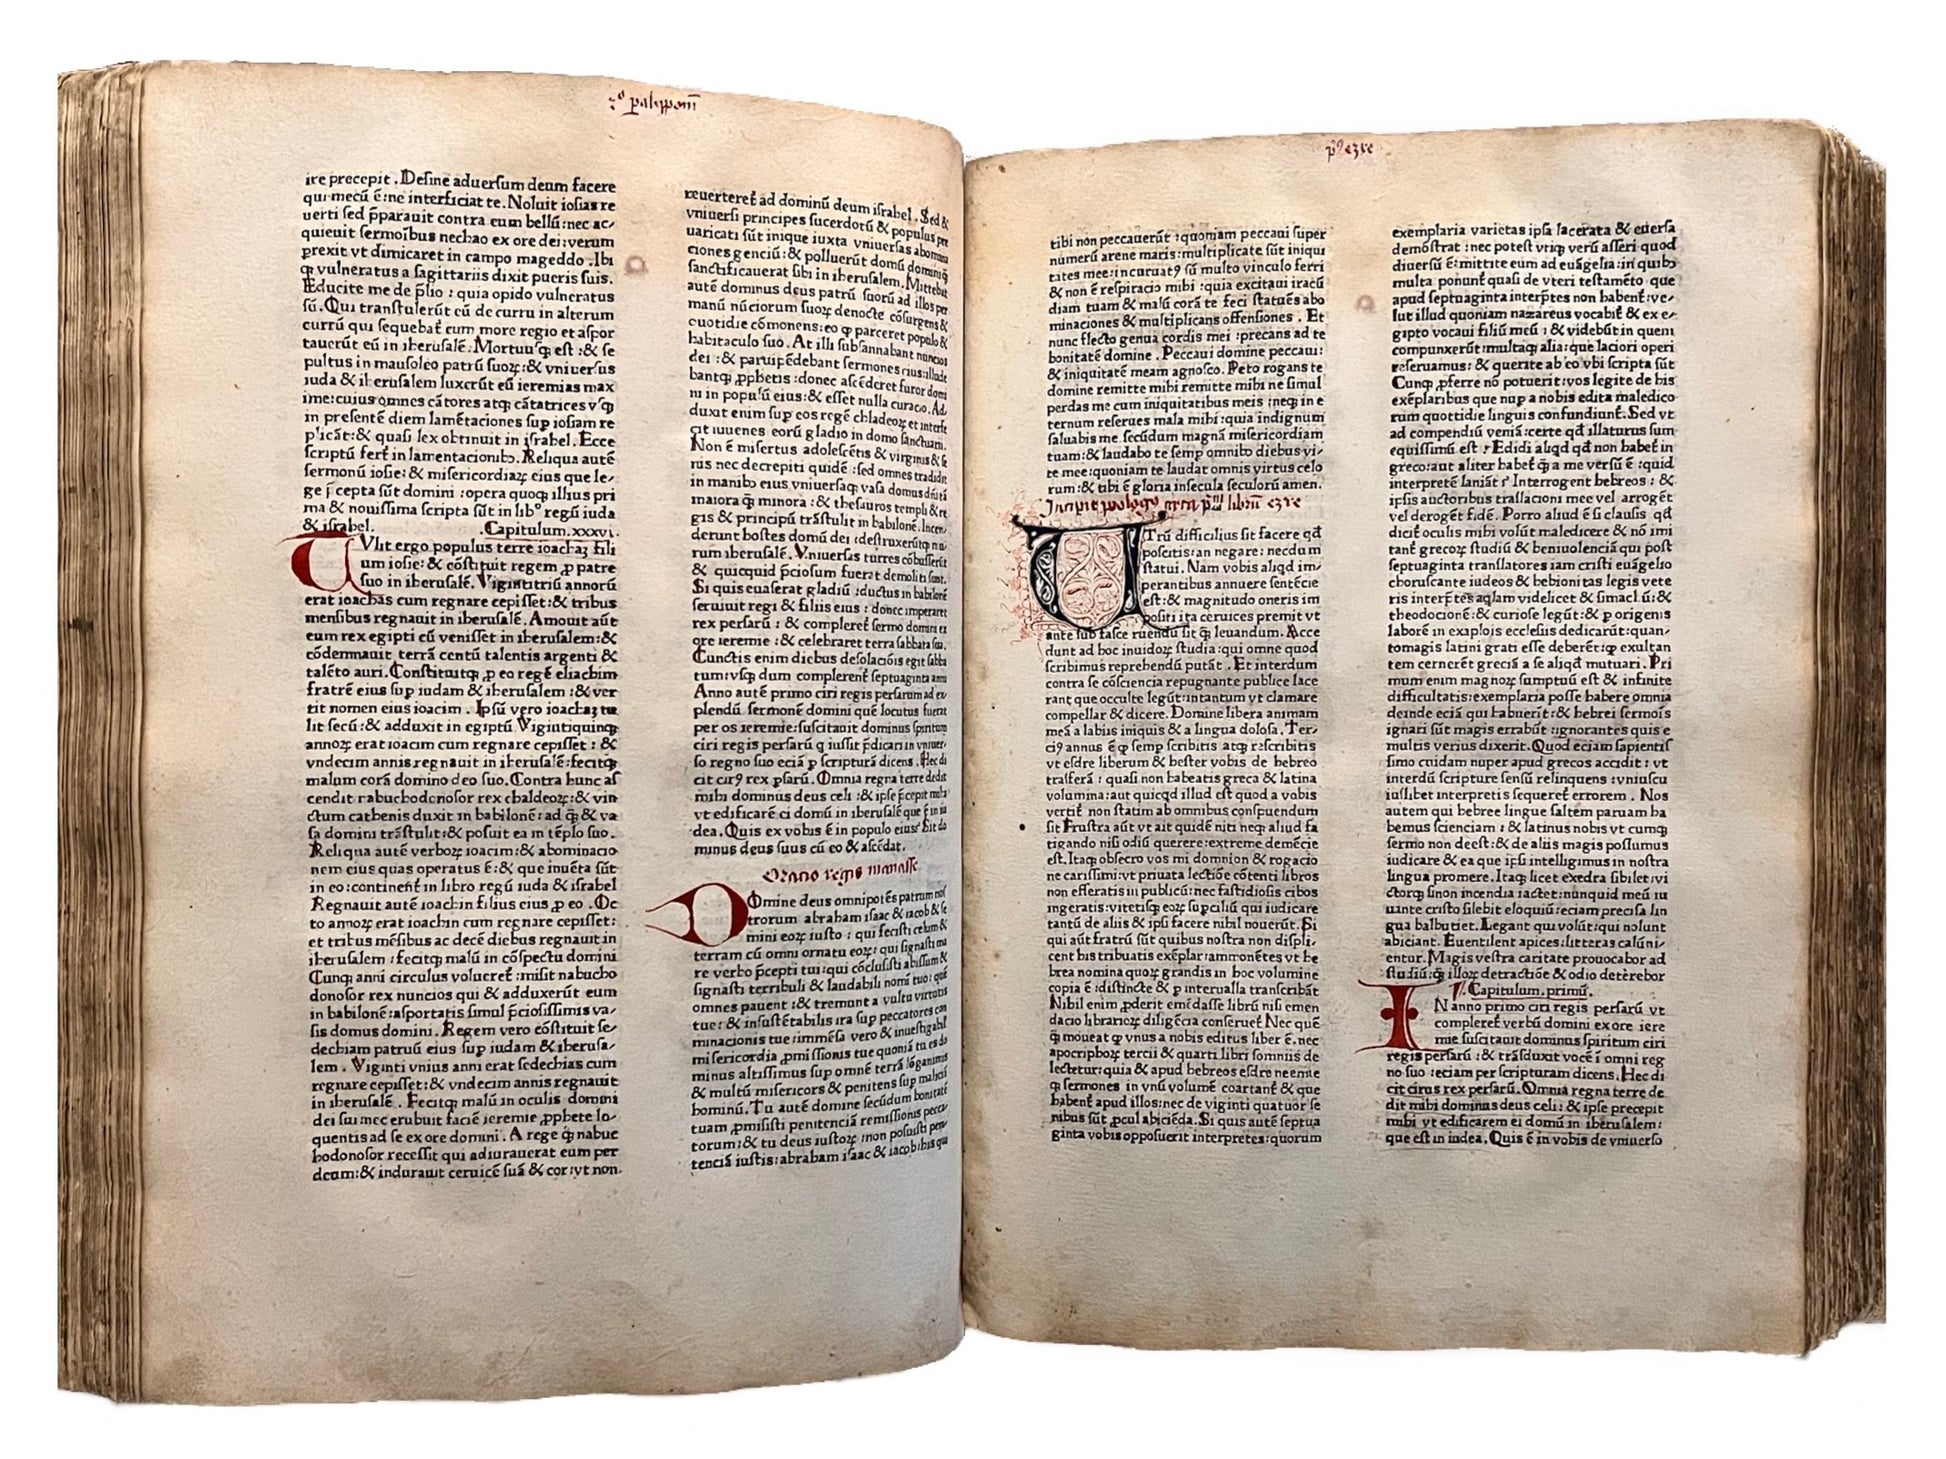 2º palippom̄
ire precepit . Desine aduersum deum facere
qui mecū ē: ne interficiat te. Noluit iosias re
uerti sed p̄parauit contra eum bellū: nec ac⸗
quieuit sermoībus nechao ex ore dei: verum
perrexit vt dimicaret in campo mageddo . Ibi
qꝫ vulneratus a sagittariis dixit pueris suis.
Educite me de p̄lio : quia opido vulneratus
sū. Qui transtulerūt cū de curru in alterum
currū qui sequebat̄ eum more regio et aspor
tauerūt eū in iherusalē. Mortuusqꝫ est : & se
pultus in mausoleo patrū suoꝝ: & vniuersus
iuda & iherusalem luxerūt eū ieremias max
ime: cuius omnes cātores atqꝫ cātatrices vsqꝫ
in presentē diem lamētaciones suꝑ iosiam re
plicāt: & quasi lex obtinuit in israhel. Ecce
scriptū fert̄ in lamentacionibꝰ. Reliqua autē
sermonū iosie: & misericordiaꝝ eius que le⸗
ge p̄cepta sūt domini : opera quoqꝫ illius pri
ma & nouissima scripta sūt in libº regū iuda
& israhel. .Capitulum.xxxvi.
TVlit ergo populus terre ioachaz fili
um iosie: & cōstituit regem ꝓ patre
suo in iherusalē. Vigintitriū annorū
erat ioachas cum regnare cepisset: & tribus
mensibus regnauit in iherusalē. Amouit aūt
eum rex egipti cū venisset in iherusalem: &
cōdemnauit terrā centū talentis argenti &
talēto auri. Constituitqꝫ ꝓ eo regē eliachim
fratrē eius suꝑ iudam & iherusalem : & ver
tit nomen eius ioacim . Ipsū vero ioachaz tu
lit secū: & adduxit in egiptū Vigintiquinqꝫ
annoꝝ erat ioacim cum regnare cepisset : &
vndecim annis regnauit in iherusalē: fecitqꝫ
malum corā domino deo suo. Contra hunc as
cendit nabuchodonosor rex chaldeoꝝ: & vin
ctum cathenis duxit in babilonē: ad qꝫ & va
sa domini trāstulit: & posuit ea in tēplo suo.
Reliqua autē verboꝝ ioacim: & abominacio
nem eius quas operatus ē: & que inuēta sūt
in eo: continent̄ in libro regū iuda & israhel
Regnauit autē ioachin filius eius ꝓ eo . Oc
to annoꝝ erat ioachin cum regnare cepisset:
et tribus mēsibus ac decē diebus regnauit in
iherusalem : fecitqꝫ malū in cōspectu domini
Cunqꝫ anni circulus volueret̄ : misit nabucho
donosor rex nuncios qui & adduxerūt eum
in babilonē: asportatis simul p̄ciosissimis va⸗
sis domus domini. Regem vero cōstituit se⸗
dechiam patruū eius suꝑ iudam & iherusa⸗
lem . Viginti vnius anni erat sedechias cum
regnare cepisset: & vndecim annis regnauit
in iherusalē . Fecitqꝫ malū in oculis domini
dei sui: nec erubuit faciē ieremie ꝓphete lo⸗
quentis ad se ex ore domini . A rege qꝫ nabuc
hodonosor recessit qui adiurauerat eum per
deum: & indurauit ceruicē suā & cor: vt non
reuerteret̄ ad dominū deum israhel. Sed &
vniuersi principes sacerdotū & populus pre
uaricati sūt inique iuxta vniuersas abomina
ciones genciū: & polluerūt domū domini qꝫ
sanctificauerat sibi in iherusalem. Mittebat
autē dominus deus patrū suorū ad illos per
manū nūciorum suoꝝ denocte cōsurgens &
cuotidie cōmonens: eo qꝫ parceret populo &
habitaculo suo. At illi subsannabant nuncios
dei : & paruipēdebant sermones eius: illude
bantqꝫ ꝓphetis : donec ascēderet furor domi
ni in populū eius: & esset nulla curacio. Ad
duxit enim suꝑ eos regē chladeoꝝ et interfe
cit iuuenes eorū gladio in domo sanctuarii.
Non ē misertus adolescētis & virginis & se
nis nec decrepiti quidē : sed omnes tradidit
in manibꝰ eius vniuersaqꝫ vasa domus dn̄i tā
maiora qꝫ minora : & thesauros templi & re
gis & principū trāstulit in babilonē. Incen⸗
derunt hostes domū dei : destruxerūtqꝫ mu
rum iherusalē. Vniuersas turres cōbusserūt
& quicquid p̄ciosum fuerat demoliti sunt.
Si quis euaserat gladiū : ductus in babilonē
seruiuit regi & filiis eius : donec imperaret
rex persarū : & compleret̄ sermo domini ex
ore ieremie : & celebraret terra sabbata sua.
Cunctis enim diebus desolaciōis egit sabba
tum: vsqꝫ dum complerent̄ septuaginta anni
Anno autē primo ciri regis persarum ad ex
plendū sermonē domini quē locutus fuerat
per os ieremie: suscitauit dominus spiritum
ciri regis persarū q iussit p̄dicari in vniuer⸗
so regno suo eciā ꝓ scripturā dicens. Hec di
cit cirꝰ rex ꝑsarū. Omnia regna terre dedit
mihi dominus deus celi : & ipse p̄cepit mihi
vt edificarē ei domū in iherusalē que ē in iu
dea. Quis ex vobis ē in populo eius? sit do
minus deus suus cū eo & ascēdat.
Oratio regis manasse
DOmine deus omnipotēs patrum nos
trorum abraham isaac & iacob & se
mini eoꝝ iusto : qui fecisti celum &
terram cū omni ornatu eoꝝ: qui signasti ma
re verbo p̄cepti tui: qui cōclusisti abissum &
signasti terribuli & laudabili nomī tuo: quē
omnes pauent : & tremunt a vultu virtutis
tue: & insustētabilis ira suꝑ peccatores com
minacionis tue: immēsa vero & inuestigabil
misericordia ꝓmissionis tue quoniā tu es do
minus altissimus suꝑ omnē terrā lōganimis
& multū misericors & penitens suꝑ maliciā
hominū. Tu autē domine secūdum bonitatē
tuam ꝓmisisti penitenciā remissionis pecca
torum: & tu deus iustoꝝ : non posuisti peni
tenciā iustis: abraham isaac & iacob: hiis qui
pº ezre
tibi non peccauerūt : quoniam peccaui super
numerū arene maris: multiplicate sūt iniqui
tates mee: incuruatꝰ sū multo vinculo ferri
& non ē respiracio mihi : quia excitaui iracū
diam tuam & malū corā te feci statuēs abo
minaciones & multiplicans offensiones . Et
nunc flecto genua cordis mei : precans ad te
bonitatē domine . Peccaui domine peccaui:
& iniquitatē meam agnosco. Peto rogans te
domine remitte mihi remitte mihi ne simul
perdas me cum iniquitatibus meis : neqꝫ in e
ternum reserues mala mihi : quia indignum
saluabis me secūdum magnā misericordiam
tuam: & laudabo te semp omnibꝰ diebus vi⸗
te mee: quoniam te laudat omnis virtus celo
rum: & tibi ē gloria in secula seculorū amen.
Incipit prologꝰ circa pm̄ librū ezre
UTrū difficilius sit facere qd̄
poscitis: an negare: necdum
statui. Nam vobis aliqd im⸗
perantibus annuere sentēcie
est: & magnitudo oneris im
positi ita ceruices premit vt
ante sub fasce ruendū sit qꝫ leuandum. Acce
dunt ad hoc inuidoꝝ studia: qui omne quod
scribimus reprehendū putāt . Et interdum
contra se cōsciencia repugnante publice lace
rant que occulte legūt: intantum vt clamare
compellar & dicere. Domine libera animam
meā a labiis iniquis & a lingua dolosa. Ter⸗
ciꝰ annus ē qꝫ semp scribitis atqꝫ rescribitis
vt esdre liberum & hester vobis de hebreo
trāsferā : quasi non habeatis greca & latina
volumina: aut quicqd illud est quod a vobis
vertit̄ non statim ab omnibus conspuendum
sit Frustra aūt vt ait quidē niti neqꝫ aliud fa
tigando nisi odiū querere: extreme demēcie
est. Itaqꝫ obsecro vos mi domnion & rogacio
ne carissimi: vt priuata lectiōe cōtenti libros
non efferatis in publicū: nec fastidiosis cibos
ingeratis: vitetisqꝫ eoꝝ suꝑciliū qui iudicare
tantū de aliis & ipsi facere nihil nouerūt. Si
qui aūt fratrū sūt quibus nostra non displi⸗
cent his tribuatis exēplar: ammonētes vt he
brea nomina quoꝝ grandis in hoc volumine
copia ē : distincte & ꝑ interualla transcribāt
Nihil enim ꝓderit emēdasse librū nisi emen
dacio librarioꝝ diligēcia conseruet̄ Nec quē
qꝫ moueat qꝫ vnus a nobis editus liber ē. nec
apocriphoꝝ tercii & quarti libri somniis de
lectetur: quia & apud hebreos esdre neemie
qꝫ sermones in vnū volumē coartant̄ & que
habent̄ apud illos: nec de viginti quatuor se
nibus sūt ꝓcul abiciēda. Si quis autē septua
ginta vobis opposuerit interpretes: quorum
exemplaria varietas ipsa lacerata & euersa
demōstrat : nec potest vtiqꝫ verū asseri quod
diuersū ē: mittite eum ad euāgelia: in quibꝰ
multa ponunt̄ quasi de vteri testamēto que
apud septuaginta interp̄tes non habent̄: ve⸗
lut illud quoniam nazareus vocabit̄ & ex e⸗
gipto vocaui filiū meū : & videbūt in quem
compunxerūt: multaqꝫ alia: que laciori operi
reseruamus: & querite ab eo vbi scripta sūt
Cunqꝫ ꝓferre nō potuerit: vos legite de his
exēplaribus que nuꝑ a nobis edita maledico
rum quottidie linguis confundiunt̄. Sed vt
ad compendiū veniā: certe qd̄ illaturus sum
equissimū est : Edidi aliqd qd̄ non habet̄ in
greco: aut aliter habet̄ qꝫ a me versū ē : quid
interpretē laniāt ? Interrogent hebreos : &
ipsis auctoribus traslacioni mee vel arroget̄
vel deroget̄ fidē. Porro aliud ē si clausis qd̄
dicit̄ oculis mihi volūt maledicere & nō imi
tant̄ grecoꝝ studiū & beniuolenciā qui post
septuaginta translatores iam cristi euāgelio
choruscante iudeos & hebionitas legis vete
ris interp̄tes aqlam videlicet & simaclū: &
theodocionē: & curiose legūt: & ꝑ origenis
laborē in exaplois ecclesiis dedicarūt: quan⸗
tomagis latini grati esse deberēt: qꝫ exultan
tem cernerēt greciā a se aliqd mutuari. Pri
mum enim magnoꝝ sumptuū est & infinite
difficultatis: exemplaria posse habere omnia
deinde eciā qui habuerīt : & hebrei sermoīs
ignari sūt magis errabūt : ignorantes quis e
multis verius dixerit. Quod eciam sapientis
simo cuidam nuper apud grecos accidit : vt
interdū scripture sensū relinquens : vniuscu
iuslibet interpretis sequeret̄ errorem . Nos
autem qui hebree lingue saltem paruam ha
bemus scienciam : & latinus nobis vt cumqꝫ
sermo non deest: & de aliis magis possumus
iudicare & ea que ipsi intelligimus in nostra
lingua promere. Itaqꝫ licet exedra sibilet: vi
ctorqꝫ sinon incendia iactet: nunquid meū iu
uante cristo silebit eloquiū: eciam precisa lin
gua balbutiet. Legant qui volūt: qui nolunt
abiciant. Euentilent apices: litteras calūni⸗
entur. Magis vestra caritate prouocabor ad
studiū: qꝫ illoꝝ detractiōe & odio deterrebor
Capitulum. primū.
IN anno primo ciri regis persarū vt
compleret̄ verbū domini ex ore iere
mie suscitauit dominus spiritum ciri
regis persarū : & trāsduxit vocē ī omni reg
no suo : eciam per scripturam dicens. Hec di
cit cirus rex persarū. Omnia regna terre de
dit mihi dominus deus celi: & ipse precepit
mihi vt edificarem ei domū in iherusalem:
que est in iudea. Quis ē in vobis de vniuerso